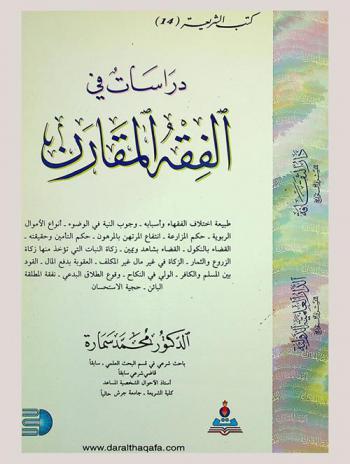 كتب الشريعة (14)
دراسات في
الفقه المقارن
طبيعة اختلاف الفقهاء وأسبابه - وجوب النية في الوضوء - أنواع الأموال
الربوية - حكم المزارعة - انتفاع المرتهن بالمرهون - حكم التأمين وحقيقته -
القضاء بالنكول - القضاء بشاهد ويمين - زكاة النبات التي تؤخذ منها زكاة
الزروع والثمار - الزكاة في غير مال غير المكلف - العقوبة بدفع المال - القود
بين المسلم والكافر - الولي في النكاح - وقوع الطلاق البدعي - نفقة المطلقة
البائن - حجية الاستحسان
الدكتور محمد سمارة
باحث شرعي في قسم البحث العلمي - سابقاً
قاضي شرعي سابقاً
أستاذ الأحوال الشخصية المساعد
كلية الشريعة - جامعة جرش حالياً
دار الثقافة
للنشر والتوزيع
الدار العلمية الدولية
للنشر والتوزيع
www.daralthaqafa.com